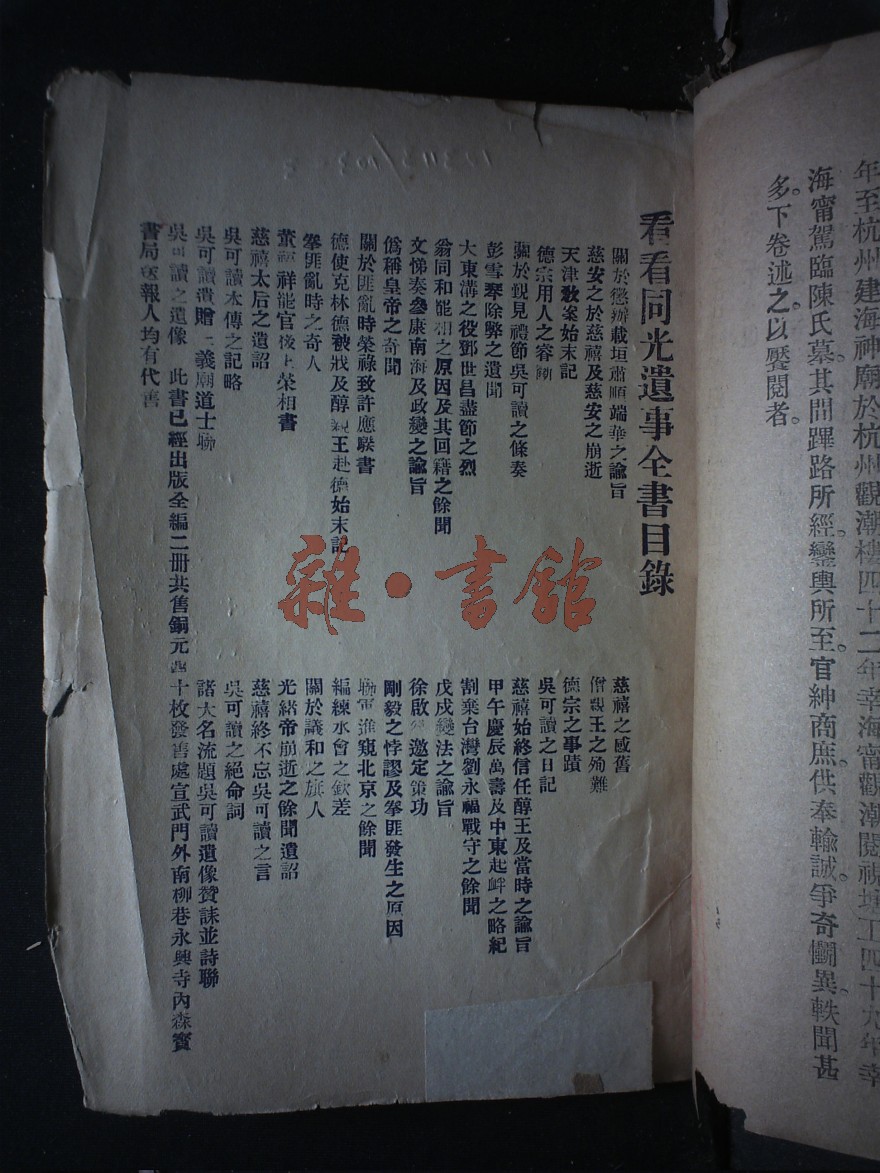 年至杭州建海神廟於杭州觀潮樓四十二年幸海甯觀潮閱視塘工四十九年幸
海甯駕臨陳氏墓。其間蹕路所經。鑾輿所至。官紳商庶。供奉輸誠。爭奇鬭異。軼聞甚
多。下卷述之。以饜閱者。
看看同光遺事全書目錄
關於懲辦載垣肅順端華之諭旨
慈安之於慈禧及慈安之崩逝
天津教案始末記
德宗用人之容
關於覲見禮節吳可讀之條奏
彭雪琴除弊之遺聞
大東溝之役鄧世昌盡節之烈
翁同和罷相之原因及其回籍之餘聞
文悌奏參康南海及政變之諭旨
僞稱皇帝之奇聞
關於匪亂時榮祿致許應騤書
德使克林德被戕及醇親王赴德始末記
拳匪亂時之奇人
董祥罷官後上榮相書
慈禧太后之遺詔
吳可讀本傳之記略
吳可讀遺贈義廟道士聯
慈禧之感舊
僧親王之殉難
德宗之事蹟
吳可讀之日記
慈禧始終信任醇王及當時之諭旨
甲午慶辰萬壽及中東起衅之略紀
割棄台灣劉永福戰守之餘聞
戊戌變法之諭旨
徐啟邀定策功
剛毅之悖謬及拳匪發生之原因
聯軍進窺北京之餘聞
編練水會之欽差
關於議和之旗人
光緒帝崩逝之餘聞遺詔
慈禧終不忘吳可讀之言
吳可讀之絕命詞
諸大名流題吳可讀遺像贊誄並詩聯
吳可讀之遺像 此書已經出版全編二冊共舊銅元四十枚發售處宣武門外南柳巷永興寺內森寶
書局送報人均有代售
雜·書館